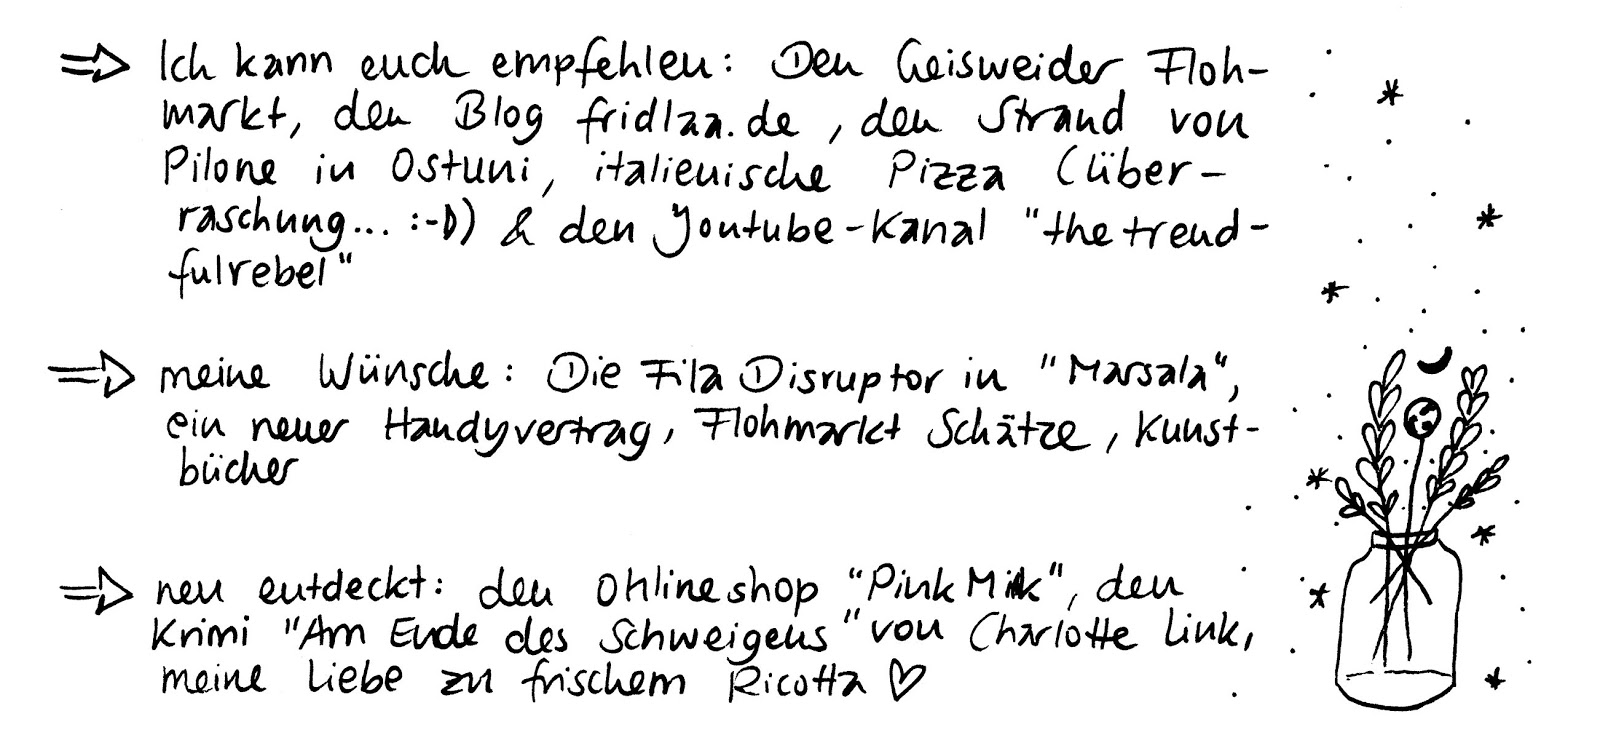 ⇒ Ich kann euch empfehlen: Den Geisweider Floh-
markt, den Blog fridlaa.de, den Strand von
Pilone in Ostuni, italienische Pizza (über-
raschung... :-D) & den Youtube-Kanal "the trend-
fulrebel"
⇒ meine Wünsche: Die Fila Disruptor in "Marsala",
ein neuer Handyvertrag, Flohmarkt Schätze, Kunst-
bücher
⇒ neu entdeckt: den Onlineshop "Pink Milk", den
Krimi "Am Ende des Schweigens" von Charlotte Link,
meine Liebe zu frischem Ricotta ♡